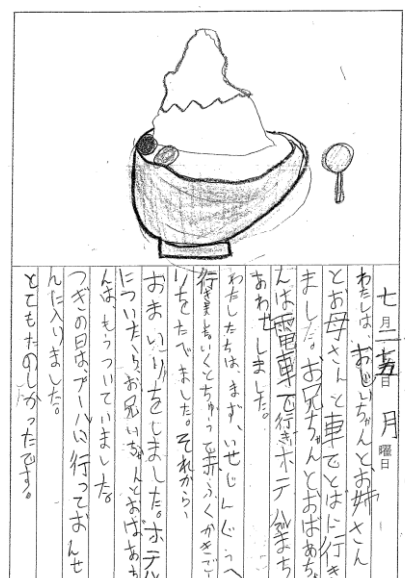 七月二十五日 月曜日
わたしは、おじいちゃんとお姉さん
とお母さんと車でとばに行き
ました。お兄ちゃんとおばあち
んは電車で行きホテルでまち
あわせしました。
わたしたちは、まず、いせじんぐうへ
行きました。いくとちゅうで赤ふくかきごー
りをたべました。それから、
おまいりをしました。ホテル
についたら、お兄ちゃんとおばあち
んは、もうついていました。
つぎの日は、プールへ行っておんせ
んに入りました。
とてもたのしかったです。